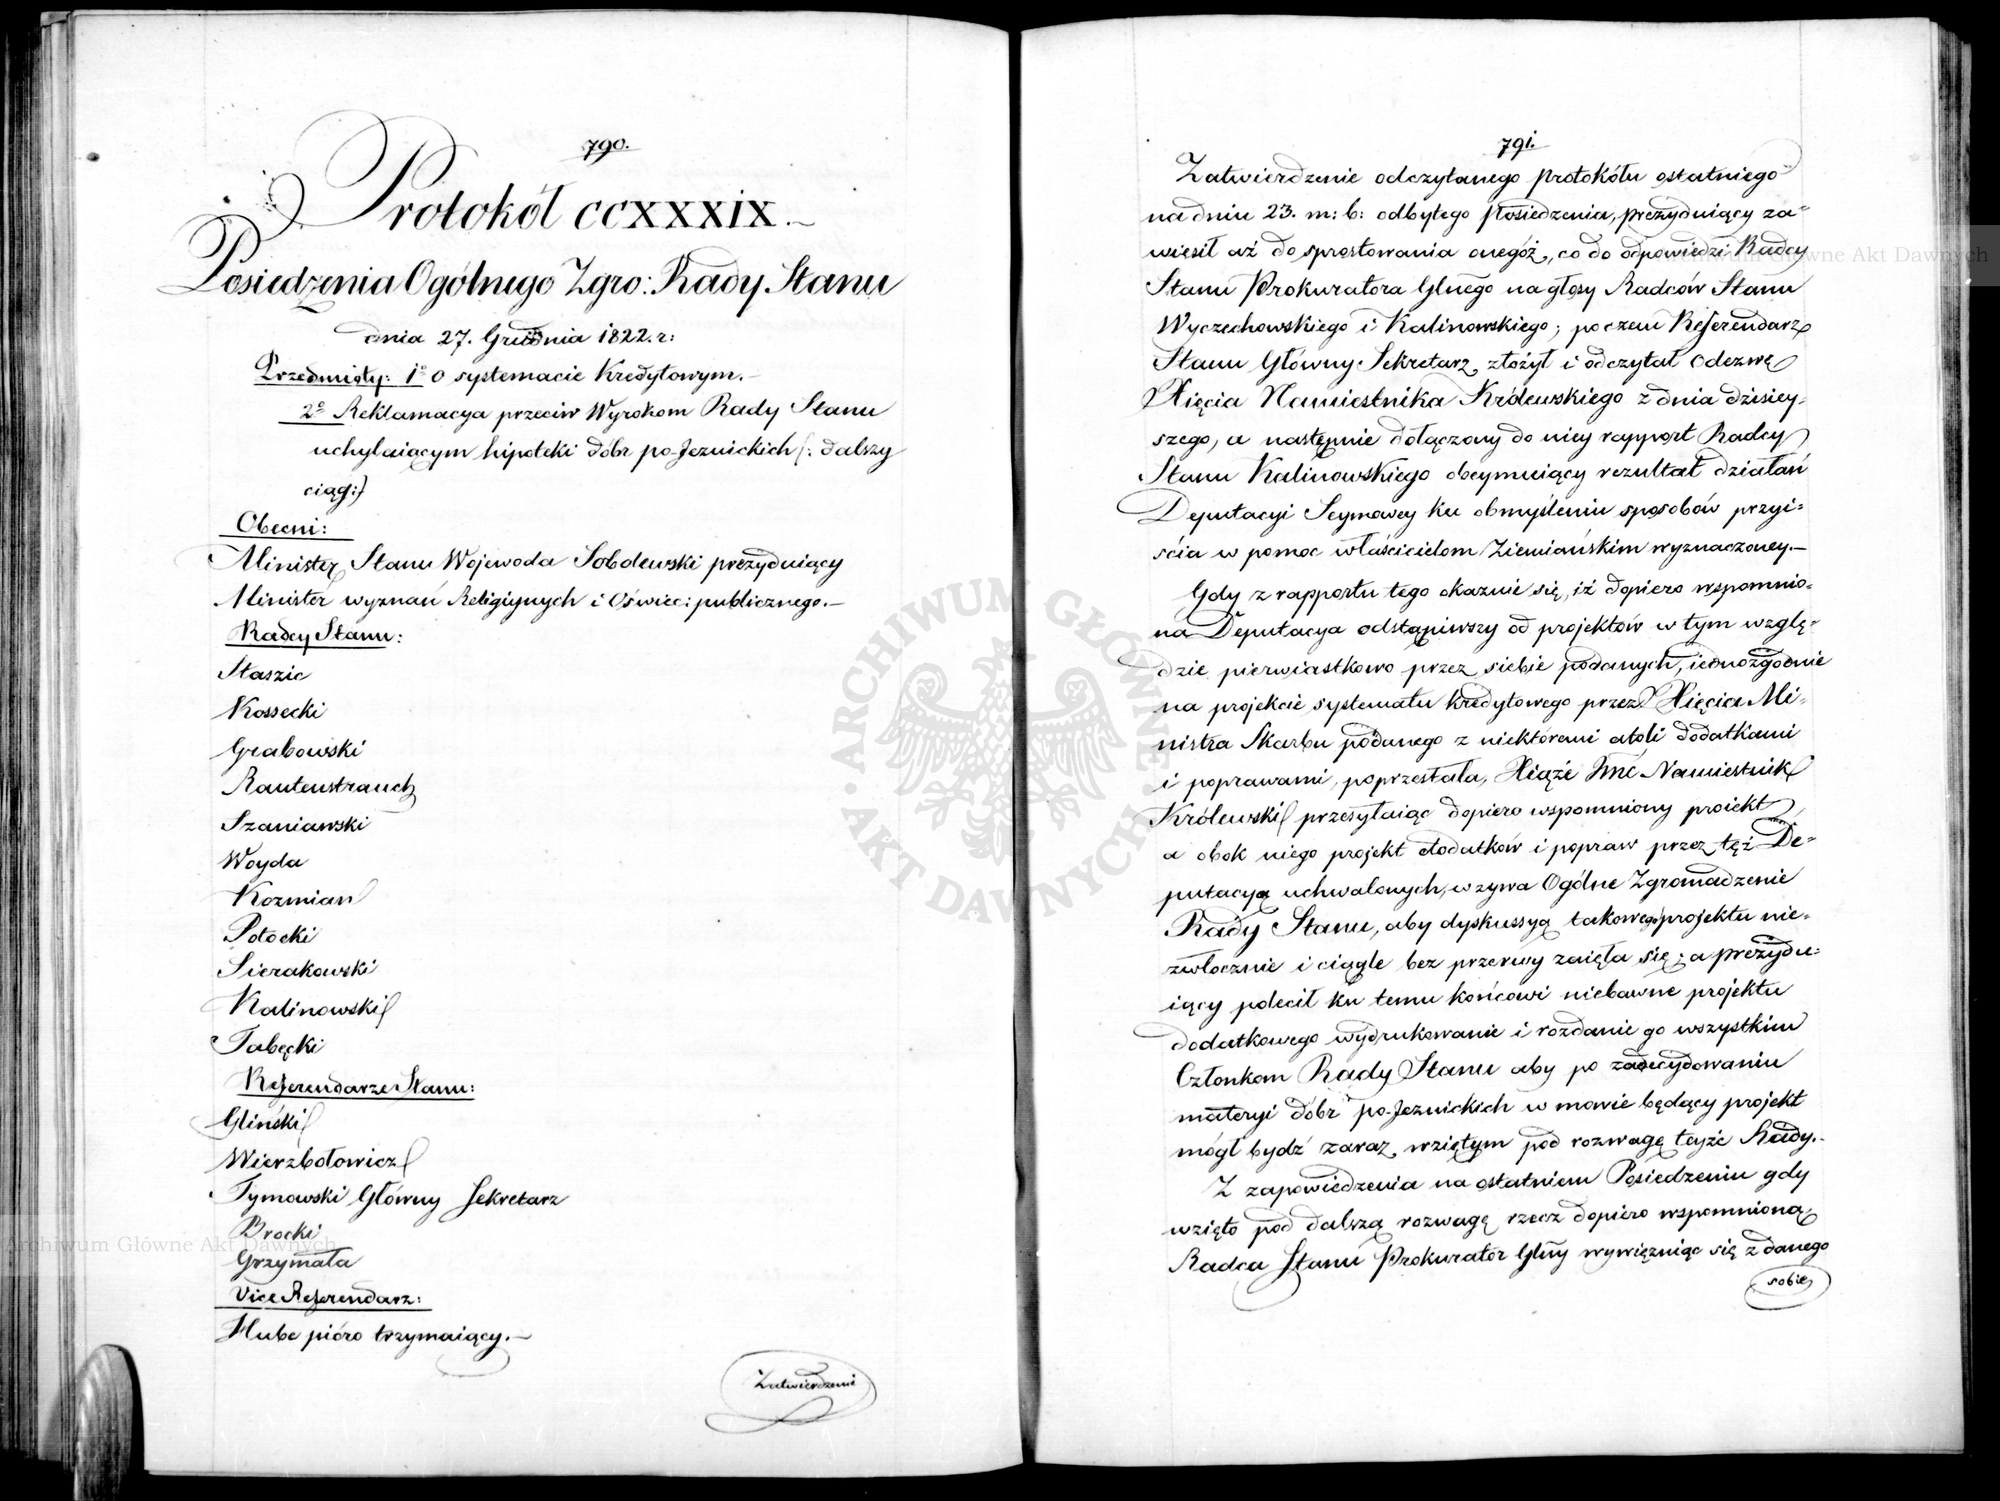 790.
Protokół CCXXXIX.
Posiedzenia Ogólnego Zgro: Rady Stanu
dnia 27. Grudnia 1822. r:
Przedmioty: 1° o systemacie Kredytowym.
2° Reklamacya przeciw Wyrokom Rady Stanu
uchylaiącym hipoteki dóbr po-Jezuickich (: dalszy
ciąg:)
Obecni:
Minister Stanu Wojewoda Sobolewski prezyduiący
Minister wyznań Religiynych i Oświec: publicznego.
Radcy Stanu:
Staszic
Kossecki
Grabowski
Rautenstrauch
Szaniawski
Woyda
Kozmian
Potocki
Sierakowski
Kalinowski
Tabęcki
Referendarze Stanu:
Gliński
Wierzbołowicz
Tymowski Główny Sekretarz
Brocki
Grzymała
Vice Referendarz:
Hube pióro trzymaiący.
Zatwierdzenie
791.
Zatwierdzenie odczytanego protokółu ostatniego
na dniu 23. m: b: odbytego Posiedzenia, prezyduiący za-
wiesił aż do sprostowania onegóż, co do odpowiedzi Radcy
Stanu Prokuratora Glnego na głosy Radców Stanu
Wyczechowskiego i Kalinowskiego; poczem Referendarz
Stanu Główny Sekretarz, złożył i odczytał odezwę
Xięcia Namiestnika Królewskiego z dnia dzisiey-
szego, a następnie dołączony do niey rapport Radcy
Stanu Kalinowskiego obeymuiący rezultat działań
Deputacyi Seymowey ku obmyśleniu sposobów przyi-
ścia w pomoc właścicielom Ziemiańskim wyznaczoney.
Gdy z rapportu tego okazuie się, iż dopiero wspomnio-
na Deputacya odstąpiwszy od projektów w tym wzglę-
dzie pierwiastkowo przez siebie podanych, iednozgodnie
na projekcie systematu kredytowego przez Xięcia Mi-
nistra Skarbu podanego z niektóremi atoli dodatkami
i poprawami, poprzestała, Xiąże Jmć Namiestnik
Królewski przesyłaiąc dopiero wspomniony proiekt
a obok niego projekt dodatków i popraw przez tęż De-
putacyą uchwalonych, wzywa Ogólne Zgromadzenie
Rady Stanu, aby dyskussyą takowego projektu nie-
zwłocznie i ciągle bez przerwy zaięła się; a prezydu-
iący polecił ku temu końcowi niebawne projektu
dodatkowego wydrukowanie i rozdanie go wszystkim
Członkom Rady Stanu aby po zadecydowaniu
materyi dóbr po-Jezuickich w mowie będący projekt
mógł bydź zaraz wziętym pod rozwagę teyże Rady.
Z zapowiedzenia na ostatniem Posiedzeniu gdy
wzięto pod dalszą rozwagę rzecz dopiero wspomnioną
Radca Stanu Prokurator Glny wywięzuiąc się z danego
sobie
Archiwum Główne Akt Dawnych
ARCHIWUM GŁÓWNE AKT DAWNYCH
Archiwum Główne Akt Dawnych